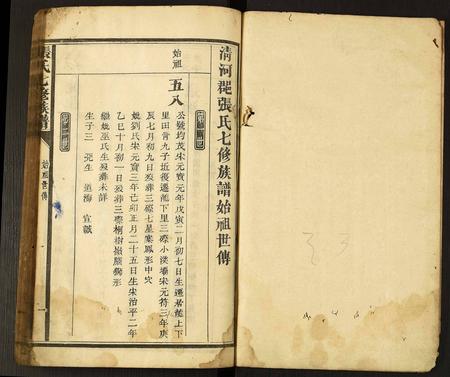 清河郡張氏七修族譜始祖世傳
始祖
五八
公號均茂宋元寶元年戊寅二月初七日生遷居龍上下
里田背九子近後遷龍下里三礤小溪壩宋元符三年庚
辰七月初九日歿葬三礤七星案鳳形中穴
娶劉氏宋元寶三年己卯正月二十五日生宋治平二年
乙巳十月初一日歿葬三礤桐樹嶺獅形
繼娶巫氏生歿葬未詳
生子三 堯生 道海 宣誠
張氏七修族譜
始祖世傳
一